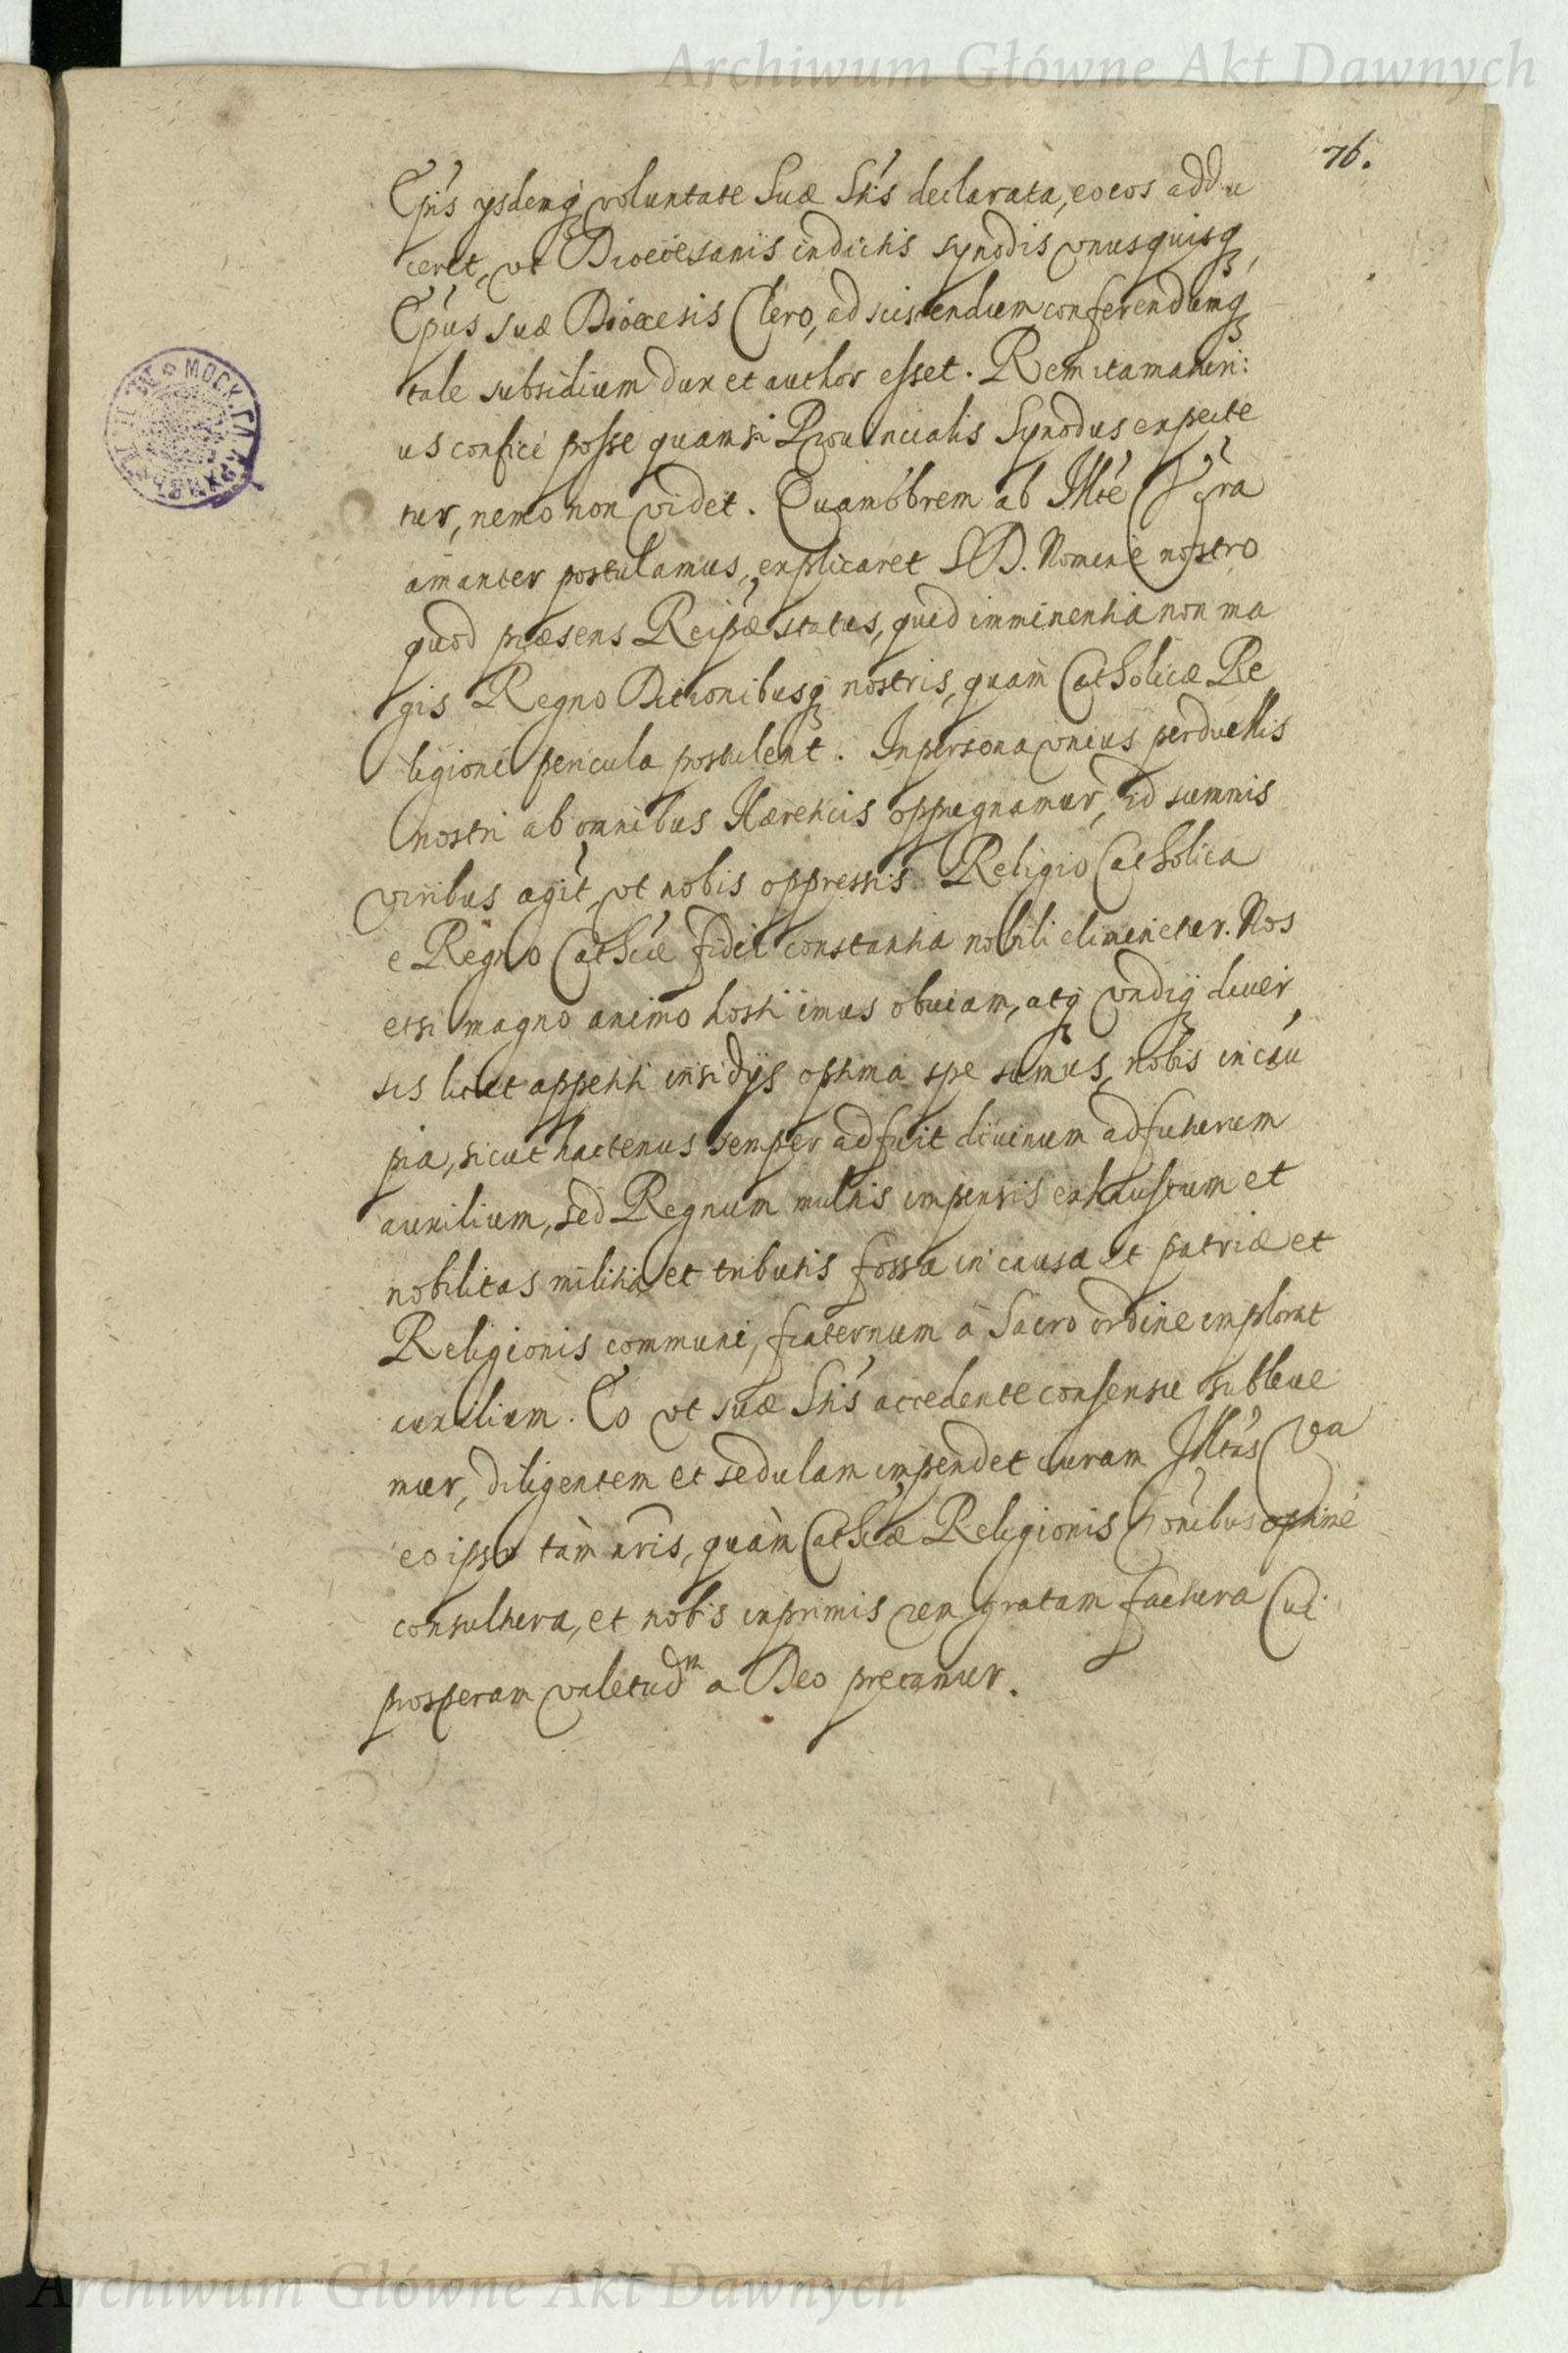 Archiwum Główne Akt Dawnych
76.
Epis ysdemq voluntate Suæ Stis declarata, eo eos addu
ceret, vt Diœcesanis indictis synodis vnusquisq,
Epus suæ Diœcesis Clero, ad sciscendum conferendumq
tale subsidium dux et author esset. Rem ita maturi:
us confici posse quam si Prouincialis Synodus expecte
tur, nemo non videt. Quamobrem ab Illte Vra
amanter postulamus, explicaret S D. Nomine nostro
quod præsens Reipæ status, quid imminentia non ma
gis Regno Ditionibusq nostris, quam Catholicæ Re
ligioni pericula postulent. In persona vnius perduellis
nostri ab omnibus Hæreticis oppugnamur, id summis
viribus agit, vt nobis oppressis Religio Catholica
e Regno Cathcæ fidei constantia nobili eliminetur. Nos
etsi magno animo hosti imus obuiam, atq vndiq diuer
sis licet appetiti insidijs optima spe sumus, nobis in cau
pia, sicut hactenus semper adfuit diuinum adfuturum
auxilium, sed Regnum multis impensis exhaustum et
nobilitas militia et tributis fossa in causa et patriæ et
Religionis communi, fraternum à Sacro ordine implorat
auxilium. Eo vt suæ Stis accedente consensu subleue
mur, diligentem et sedulam impendet curam Illtas Va
eo ipso tàm nris, quàm Cathcæ Religionis ronibus optimè
consultura, et nobis inprimis rem gratam factura Cui
prosperam valetudm a Deo precamur.
МОСК. ГЛ. АРХИВЪ М. И. Д.
Archiwum Główne Akt Dawnych